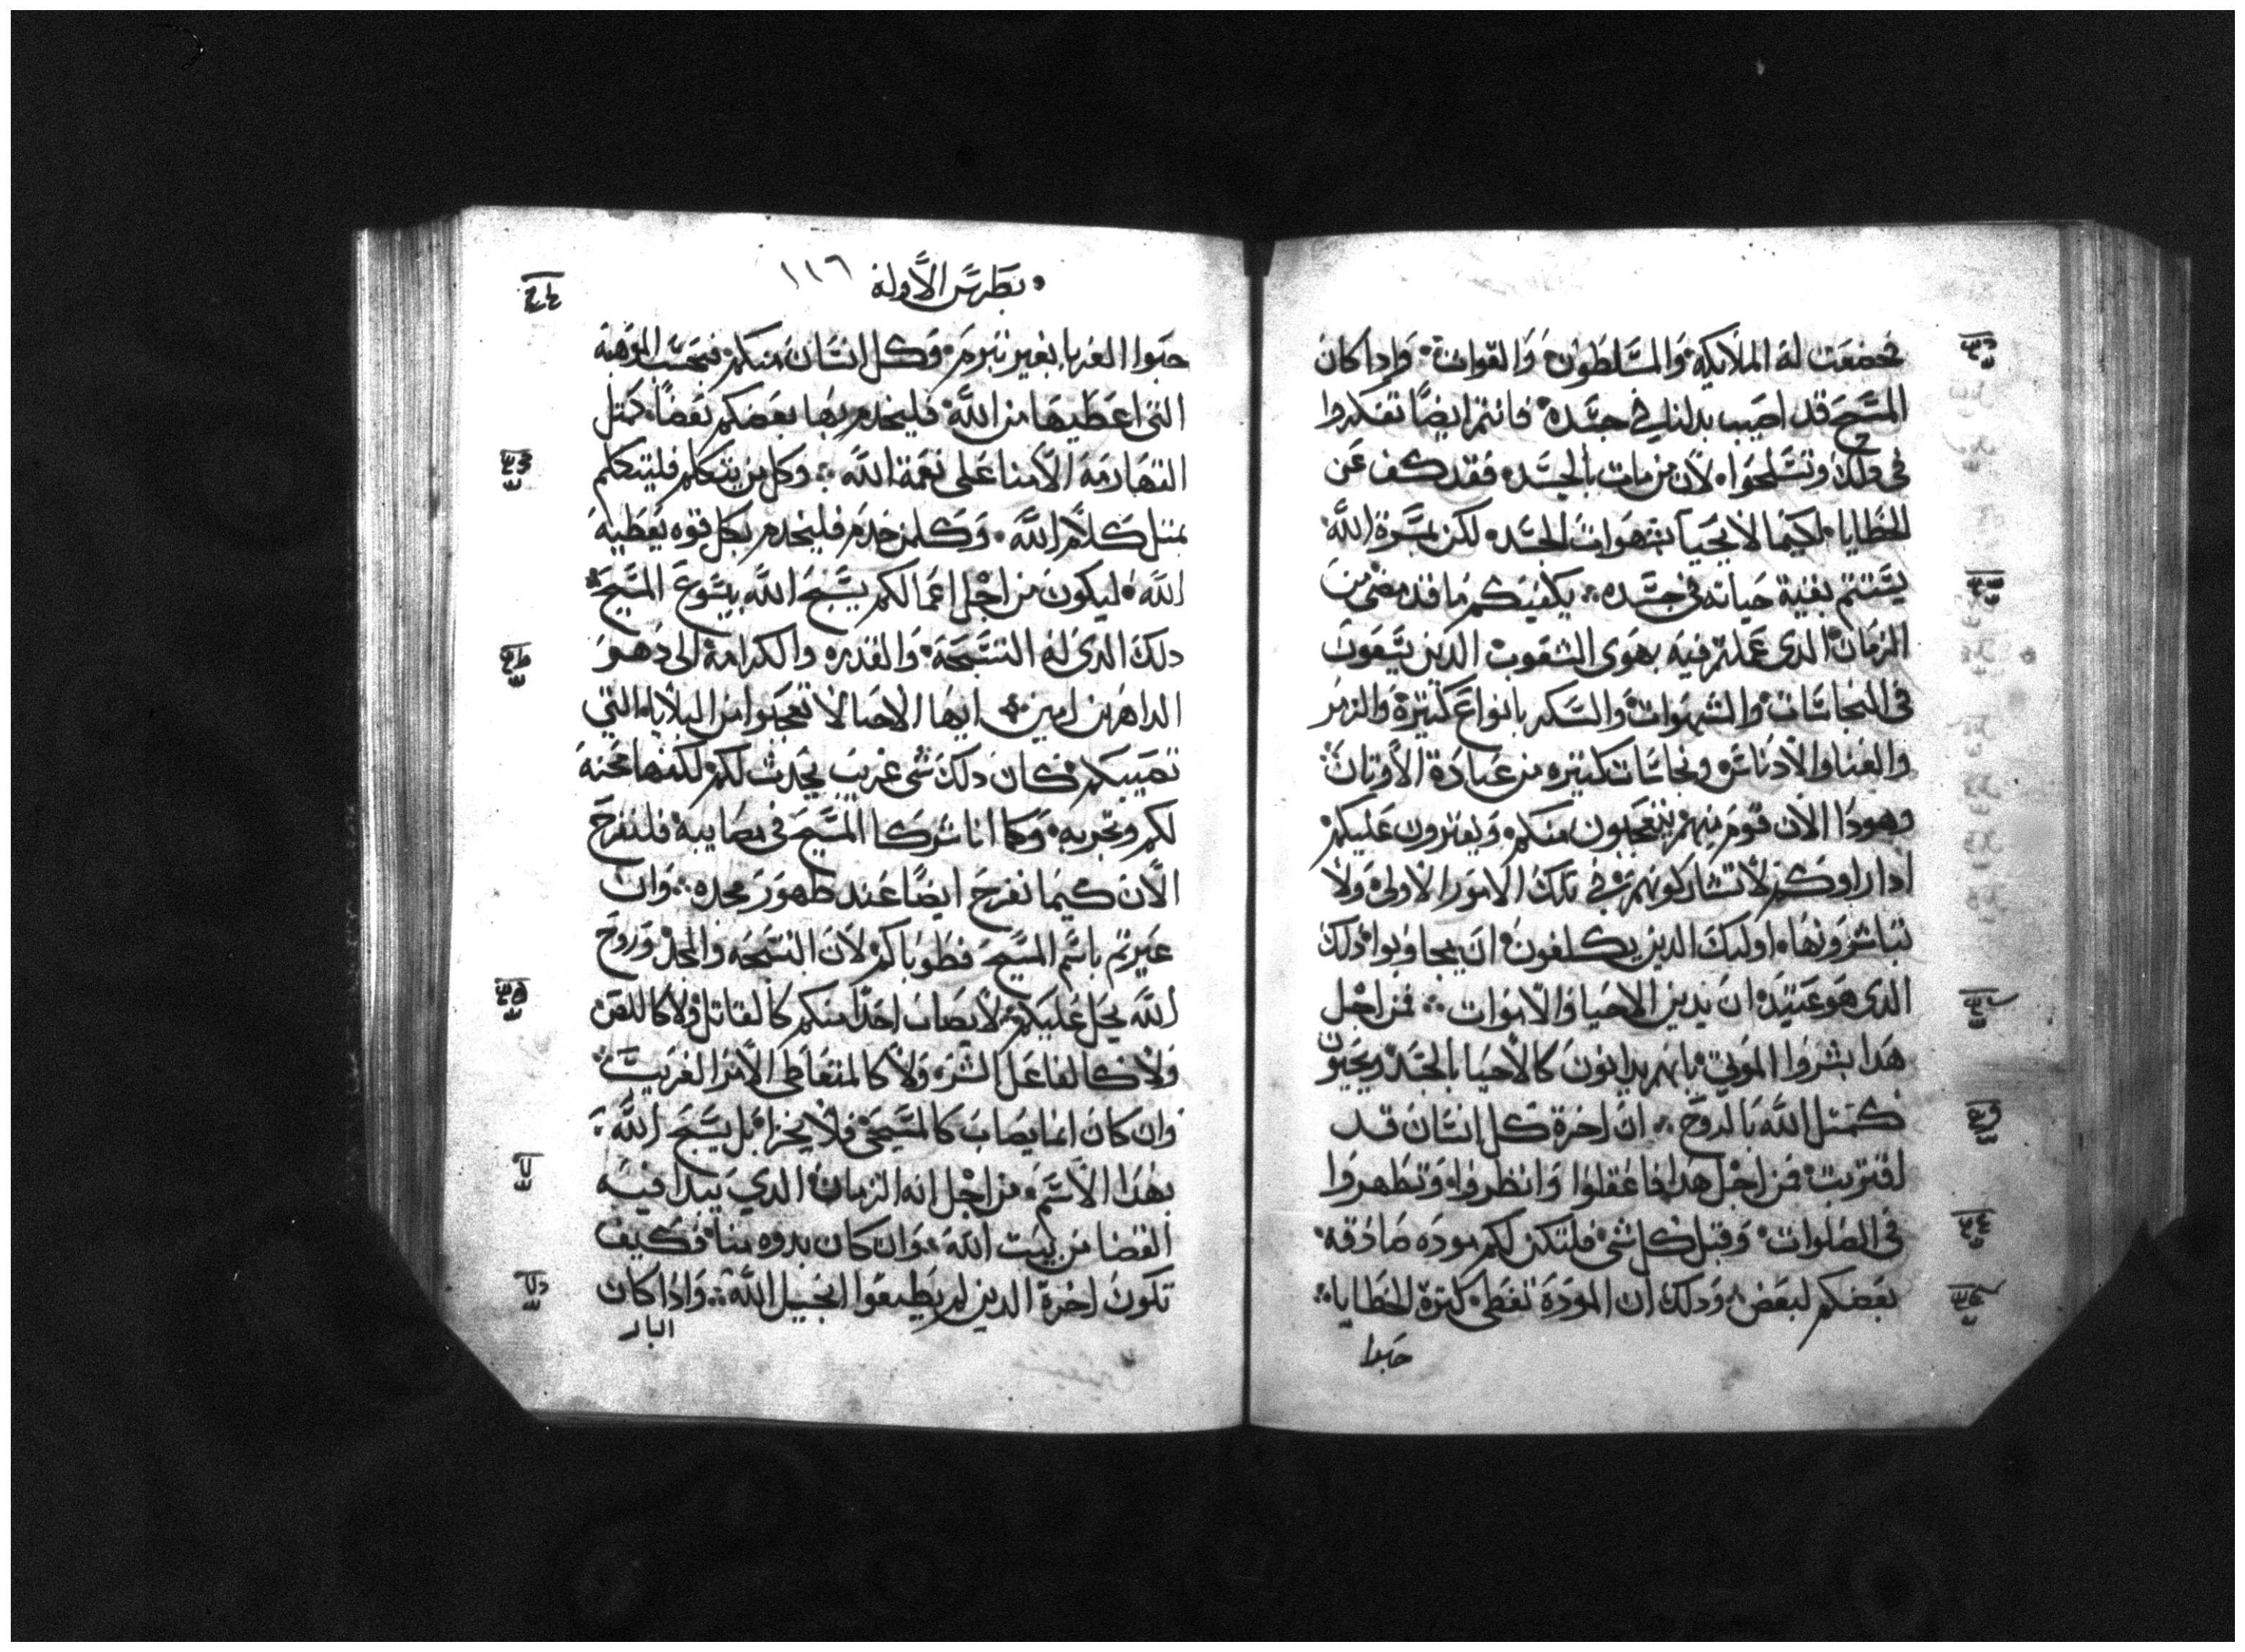 خضعت له الملايكه والسلطون والقوات وادا كان
المسيح قد اصيب بدلنا في جسده فانتم ايضا تفكروا
في دلك وتسلحوا لان من مات بالجسد فقد كف عن
الخطايا لكيما لا يحيا بشهوات الجسد لكن بمسرة الله
يستتم بقية حياته في جسده يكفيكم ما قد مضى من
الزمان الدى عملتم فيه بهوى الشعوب الدين يسعون
في النجاسات والشهوات والسكر بانواع كتيرة والزمر
والغنا والادناس ونجاسات كتيره من عبادة الاوتان
وهودا الان قوم منهم يتعجبون منكم ويفترون عليكم
ادا راوكم لا تشاركونهم في تلك الامور الاولى ولا
تباشرونها اوليك الدين يكلفون ان يجاوبوا دلك
الدى هو عتيد ان يدين الاحيا والاموات فمن اجل
هدا بشروا الموتى بانهم يدانون كالاحيا بالجسد ويحيون
كمتل الله بالروح ان اخرة كل انسان قد
اقتربت فمن اجل هدا فاعقلوا وانظروا وتطهروا
في الصلوات وقبل كل شي فلتكن لكم مودة صادقه
بعضكم لبعض ودلك ان المودة تغطى كترة الخطايا
حبوا
بطرس الاولة ١١٦
حبوا الغربا بغير تبرم وكل انسان منكم فبحسب الموهبة
التى اعطيها من الله فليخدم بها بعضكم بعضا كمتل
القهارمة الامنا على نعمة الله وكل من يتكلم فليتكلم
بمتل كلام الله وكلمن خدم فليخدم بكل قوه يعطيه
الله ليكون من اجل اعمالكم يسبح الله بيسوع المسيح
دلك الدى له التسبحة والقدره والكرامة الى دهر
الداهرين امين ايها الاحبا لا تعجبوا من البلايا التي
تصيبكم كان دلك شي غريب يحدث لكم لكنها محنة
لكم وتجربه وكما انا شركا المسيح في مصايبه فلنفرح
الان كيما نفرح ايضا عند ظهور مجده وان
عيرتم باسم المسيح فطوباكم لان التسبحه والمجد وروح
الله يحل عليكم لا يصاب احدا منكم كالقاتل ولا كاللص
ولا كالفاعل الشر ولا كالمتعاطى الامر الغريب
وان كان انما يصاب كالمسيحي فلا يخزا بل يسبح الله
بهدا الاسم من اجل انه الزمان الدي يبدا فيه
القضا من بيت الله وان كان بدوه منا فكيف
تكون اخرة الدين لم يطيعوا انجيل الله وادا كان
البار